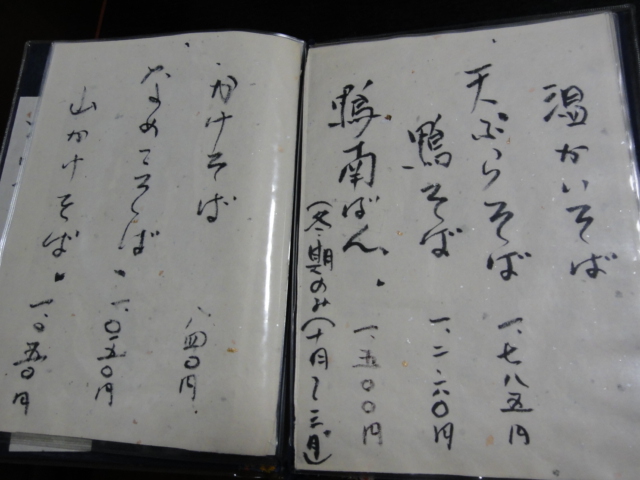 温かいそば
天ぷらそば 一、七八五円
鴨そば 一、二六〇円
鴨南ばん 一、五〇〇円
(冬期のみ(十月〜三月)
かけそば 八四〇円
なめこそば 一、〇五〇円
山かけそば 一、〇五〇円